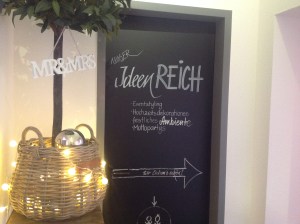 MR&MRS
unser
Ideen REICH
Eventstyling
Hochzeitsdekorationen
Ambiente
Mottopartys